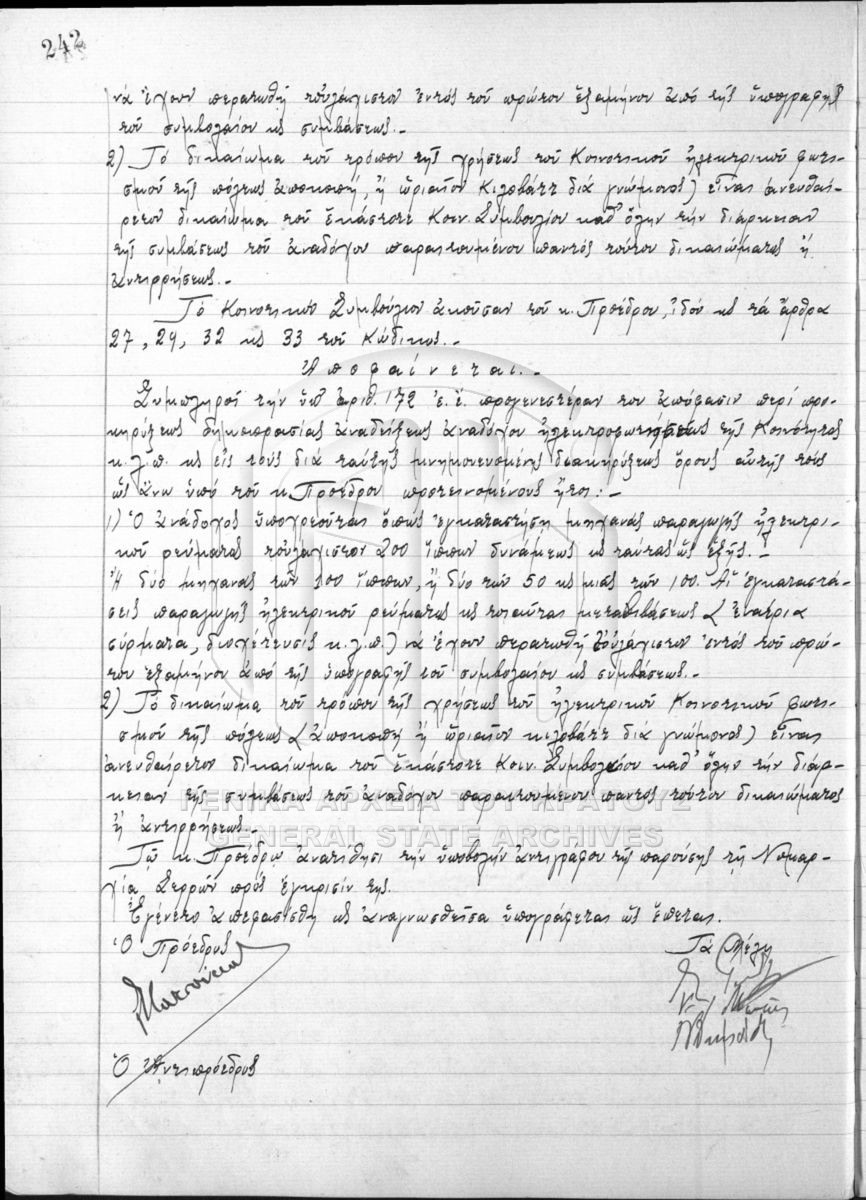 242
νά ἔχουν περατωθῇ τοὐλάχιστον ἐντός τοῦ πρώτου ἑξαμήνου ἀπό τῆς ὑπογραφῆς
τοῦ συμβολαίου κς συμβάσεως.-
2) Τό δικαίωμα τοῦ τρόπου τῆς χρήσεως τοῦ Κοινοτικοῦ ἠλεκτρικοῦ φωτι-
σμοῦ τῆς πόλεως ἀποκοπῇ, ἤ ὡριαῖον κιλοβάττ διά γνώμονος) εἶναι ἀνευθαί-
ρετον δικαίωμα τοῦ ἑκάστοτε Κοιν. Συμβουλίου καθ' ὅλην τήν διάρκειαν
τῆς συμβάσεως τοῦ ἀναδόχου παραιτουμένου παντός τούτου δικαιώματος ἤ
ἀντιρρήσεως.-
Τό Κοινοτικόν Συμβούλιον ἀκοῦσαν τοῦ κ. Προέδρου, ἰδόν κς τά ἄρθρα
27, 29, 32 κς 33 τοῦ Κώδικος.-
Ἀποφαίνεται.-
Συμπληροῖ τήν ὑπ' ἀριθ. 172 ἐ.ἔ. προγενεστέραν του ἀπόφασιν περί προ-
κηρύξεως δημοπρασίας ἀναδείξεως ἀναδόχου ἠλεκτροφωτίσεως τῆς Κοινότητος
κ.λ.π. κς εἰς τούς διά ταύτης μνημονευομένης διακηρύξεως ὅρους αὐτῆς τούς
ὡς ἄνω ὑπό τοῦ κ. Προέδρου προτεινομένους ἤτοι:-
1) Ὁ ἀνάδοχος ὑποχρεοῦται ὅπως ἐγκαταστήσῃ μηχανάς παραγωγῆς ἠλεκτρι-
κοῦ ρεύματος τοὐλάχιστον 200 ἵππων δυνάμεως κς ταύτας ὡς ἑξῆς.-
Ἤ δύο μηχανάς τῶν 100 ἵππων, ἤ δύο τῶν 50 κς μιᾶς τῶν 100. Αἱ ἐγκαταστά-
σεις παραγωγῆς ἠλεκτρικοῦ ρεύματος κς τοιαῦται μεταβιβάσεως (ἐναέρια
σύρματα, διοχέτευσις κ.λ.π.) νά ἔχουν περατωθῇ τοὐλάχιστον ἐντός τοῦ πρώ-
του ἑξαμήνου ἀπό τῆς ὑπογραφῆς τοῦ συμβολαίου κς συμβάσεως.-
2) Τό δικαίωμα τοῦ τρόπου τῆς χρήσεως τοῦ ἠλεκτρικοῦ Κοινοτικοῦ φωτι-
σμοῦ τῆς πόλεως (ἀποκοπῇ ἤ ὡριαῖον κιλοβάττ διά γνώμονος) εἶναι
ἀνευθαίρετον δικαίωμα τοῦ ἑκάστοτε Κοιν. Συμβουλίου καθ' ὅλην τήν διάρ-
κειαν τῆς συμβάσεως τοῦ ἀναδόχου παραιτουμένου παντός τούτου δικαιώματος
ἤ ἀντιρρήσεως.-
ΓΕΝΙΚΑ ΑΡΧΕΙΑ ΤΟΥ ΚΡΑΤΟΥΣ
GENERAL STATE ARCHIVES
Τῷ κ. Προέδρῳ ἀνατίθησι τήν ὑποβολήν ἀντιγράφου τῆς παρούσης τῇ Νομαρ-
χίᾳ Σερρῶν πρός ἔγκρισίν της.
Ἐγένετο ἀπεφασίσθη κς ἀναγνωσθεῖσα ὑπογράφεται ὡς ἕπεται.
Ὁ Πρόεδρος Τά Μέλη
Ὁ Ἀντιπρόεδρος